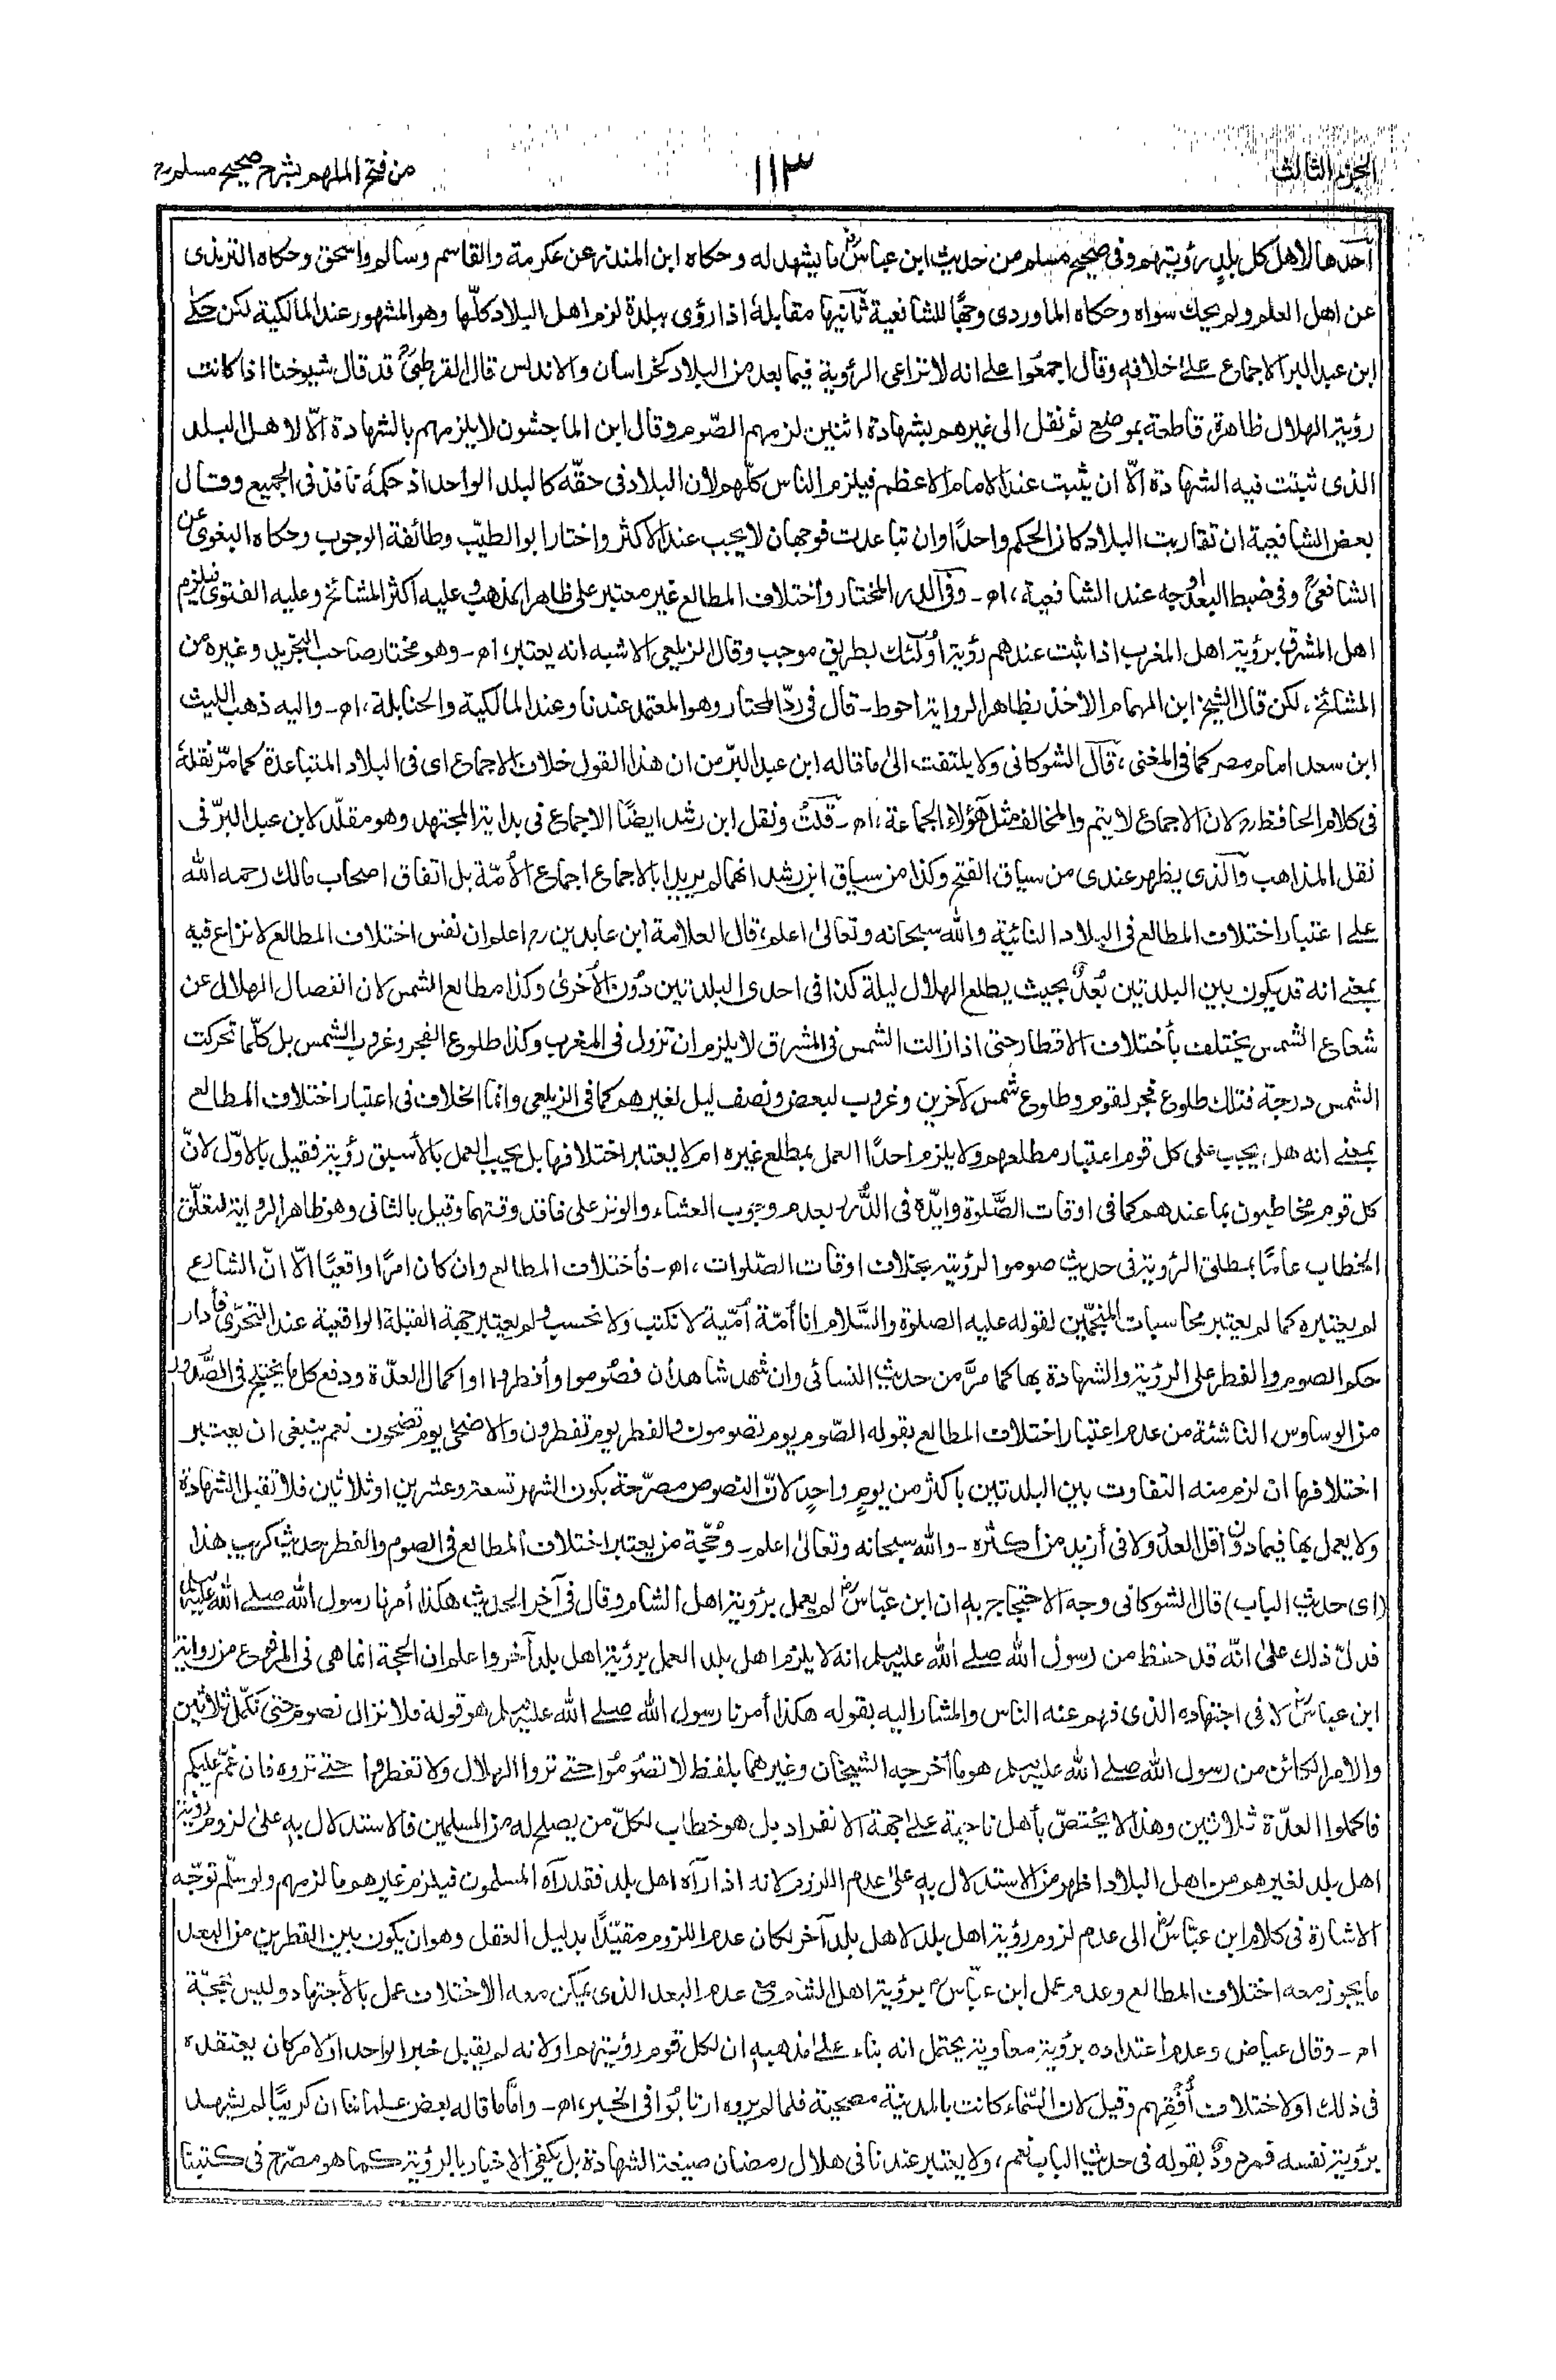 الجزء الثالث
١١٣
من فتح الملهم بشرح صحيح مسلم رح
احدها لاهل كل بلد رؤيتهم وفى صحيح مسلم من حديث ابن عباسؓ ما يشهد له وحكاه ابن المنذر عن عكرمة والقاسم وسالم واسحق وحكاه الترمذى
عن اهل العلم ولم يحك سواه وحكاه الماوردى وجهًا للشافعية ثانيها مقابلهٗ اذا رؤى ببلدة لزم اهل البلاد كلّها وهو المشهور عند المالكية لكن حكٰے
ابن عبد البر الاجماع علےٰ خلافهٖ وقال اجمعُوا علے انه لا تراعى الرؤية فيما بعد من البلاد كخراسان والاندلس قال القرطبىؒ قد قال شيوخنا اذا كانت
رؤية الهلال ظاهرة قاطعة بموضع ثم نقل الى غيرهم بشهادة اثنين لزمهم الصّوم وقال ابن الماجشون لا يلزمهم بالشهادة الّا لاهل البلد
الذى ثبتت فيه الشهادة الّا ان يثبت عند الامام الاعظم فيلزم الناس كلّهم لان البلاد فى حقّه كالبلد الواحد اذ حكمهٗ نافذ فى الجميع وقال
بعض الشافعية ان تقاربت البلاد كان الحكم واحدًا وان تباعدت فوجهان لا يجب عند الاكثر واختار ابو الطيّب وطائفة الوجوب وحكاه البغوى عن
الشافعىؒ وفى ضبط البعد اوجه عند الشافعية، اھ ـ وفى الدر المختار واختلاف المطالع غير معتبر على ظاهر المذهب وعليه اكثر المشائخ وعليه الفتوى فيلزم
اهل المشرق برؤية اهل المغرب اذا ثبت عندهم رؤية اولٰئك بطريق موجب وقال الزيلعى الاشبه انه يعتبر، اھ ـ وهو مختار صاحب التجريد وغيره من
المشائخ، لكن قال الشيخ ابن الهمام الاخذ بظاهر الرواية احوط ـ قال فى ردّ المحتار وهو المعتمد عندنا وعند المالكية والحنابلة، اھ ـ واليه ذهب الليث
ابن سعد امام مصر كما فى المغنى، قال الشوكانى ولا يلتفت الىٰ ما قاله ابن عبد البرّ من ان هذا القول خلاف الاجماع اى فى البلاد المتباعدة كما مرّ نقلهٗ
فى كلام الحافظ رح لان الاجماع لا يتم والمخالف مثل هٰؤلاء الجماعة، اھ ـ قلتُ ونقل ابن رشد ايضًا الاجماع فى بداية المجتهد وهو مقلّد لابن عبد البرّ فى
نقل المذاهب والذى يظهر عندى من سياق الفتح وكذا من سياق ابن رشد انهما لم يريدا بالاجماع اجماع الاُمّة بل اتفاق اصحاب مالك رحمه الله
علے اعتبار اختلاف المطالع فى البلاد النائية والله سبحانه وتعالىٰ اعلم، قال العلامة ابن عابدين رح اعلم ان نفس اختلاف المطالع لا نزاع فيه
بمعنے انه قد يكون بين البلدتين بُعدٌ بحيث يطلع الهلال ليلة كذا فى احدى البلدتين دُون الاُخرىٰ وكذا مطالع الشمس لان انفصال الهلال عن
شعاع الشمس يختلف بأختلاف الاقطار حتى اذا زالت الشمس فى المشرق لا يلزم ان تزول فى المغرب وكذا طلوع الفجر وغروب الشمس بل كلّما تحركت
الشمس درجة فتلك طلوع فجر لقوم وطلوع شمس لآخرين وغروب لبعض ونصف ليل لغيرهم كما فى الزيلعى وانما الخلاف فى اعتبار اختلاف المطالع
بمعنے انه هل يجب على كل قوم اعتبار مطلعهم ولا يلزم احدًا العمل بمطلع غيره ام لا يعتبر اختلافها بل يجب العمل بالأسبق رؤية فقيل بالاوّل لانّ
كل قوم مخاطبون بما عندهم كما فى اوقات الصَّلوة وايّده فى الدُّرر بعدم وجوب العشاء والوتر على فاقد وقتهما وقيل بالثانى وهو ظاهر الرواية لتعلّق
الخطاب عامًّا بمطلق الرؤية فى حديث صوموا لرؤيته بخلاف اوقات الصّلوات، اھ ـ فأختلاف المطالع وان كان امرًا واقعيًا الّا انّ الشارع
لم يعتبره كما لم يعتبر محاسبات المنجّمين لقوله عليه الصلوة والسَّلام انا اُمّة اُمّية لا نكتب ولا نحسب ولم يعتبر جهة القبلة الواقعية عند التحرّى فأدار
حكم الصوم والفطر على الرؤية والشهادة بها كما مرَّ من حديث النسائى وان شهد شاهدان فصُوموا وأفطروا او اكمال العدّة ودفع كل ما يختلج فى الصُّدور
من الوساوس الناشئة من عدم اعتبار اختلاف المطالع بقوله الصّوم يوم تصومون والفطر يوم تفطرون والاضحٰى يوم تضحون نعم ينبغى ان يعتبر
اختلافها ان لزم منه التفاوت بين البلدتين باكثر من يومٍ واحدٍ لانّ النصوص مصرّحة بكون الشهر تسعة وعشرين او ثلاثين فلا تقبل الشهادة
ولا يعمل بها فيما دون اقل العدد ولا فى أزيد من أكثره ـ والله سبحانه وتعالىٰ اعلم ـ وحُجّية من يعتبر اختلاف المطالع فى الصوم والفطر حديث كريب هذا
(اى حديث الباب) قال الشوكانى وجه الاحتجاج بهٖ ان ابن عبّاسؓ لم يعمل برؤية اهل الشام وقال فى آخر الحديث هكذا أمرنا رسول الله صلے الله عليه وسلم
فدلّ ذلك علىٰ انّه قد حفظ من رسول الله صلے الله عليه وسلم انه لا يلزم اهل بلد العمل برؤية اهل بلد آخر واعلم ان الحجة انما هى فى المرفوع من رواية
ابن عباسؓ لا فى اجتهاده الذى فهم عنه الناس والمشار اليه بقوله هكذا أمرنا رسول الله صلے الله عليه وسلم هو قوله فلا نزال نصوم حتى نكمّل ثلاثين
والامر الكائن من رسول الله صلے الله عليه وسلم هو ما أخرجه الشيخان وغيرهما بلفظ لا تصُومُوا حتے تروا الهلال ولا تفطروا حتے تروه فان غمّ عليكم
فاكملوا العدّة ثلاثين وهذا لا يُختصّ بأهل ناحية علےٰ جهة الانفراد بل هو خطاب لكلّ من يصلح له من المسلمين فالاستدلال بهٖ علىٰ لزوم رؤية
اهل بلد لغيرهم من اهل البلاد اظهر من الاستدلال بهٖ علىٰ عدم اللزوم لانه اذا رآه اهل بلد فقد رآه المسلمون فيلزم غيرهم ما لزمهم ولو سلّم توجّه
الاشارة فى كلام ابن عبّاسؓ الى عدم لزوم رؤية اهل بلد لاهل بلد آخر لكان عدم اللزوم مقيّدًا بدليل العقل وهو ان يكون بين القطرين من البعد
ما يجوز معه اختلاف المطالع وعدم عمل ابن عبّاسؓ برؤية اهل الشام مع عدم البعد الذى يمكن معه الاختلاف عمل بالأجتهاد وليس بحجّة
اھ ـ وقال عياض وعدم اعتداده برؤية معاوية يحتمل انه بناء علےٰ مذهبهٖ ان لكل قوم رؤيتهم او لانه لم يقبل خبر الواحد او لامر كان يعتقده
فى ذلك او لاختلاف اُفُقهم وقيل لان السّماء كانت بالمدينة مصحية فلما لم يروه ارتابُوا فى الخبر، اھ ـ وامّا ما قاله بعض علمائنا ان كريبًا لم يشهد
برؤية نفسه فمردودٌ بقوله فى حديث الباب نعم، ولا يعتبر عندنا فى هلال رمضان صيغة الشهادة بل يكفى الاخبار بالرؤية كما هو مصرّح فى كتبنا